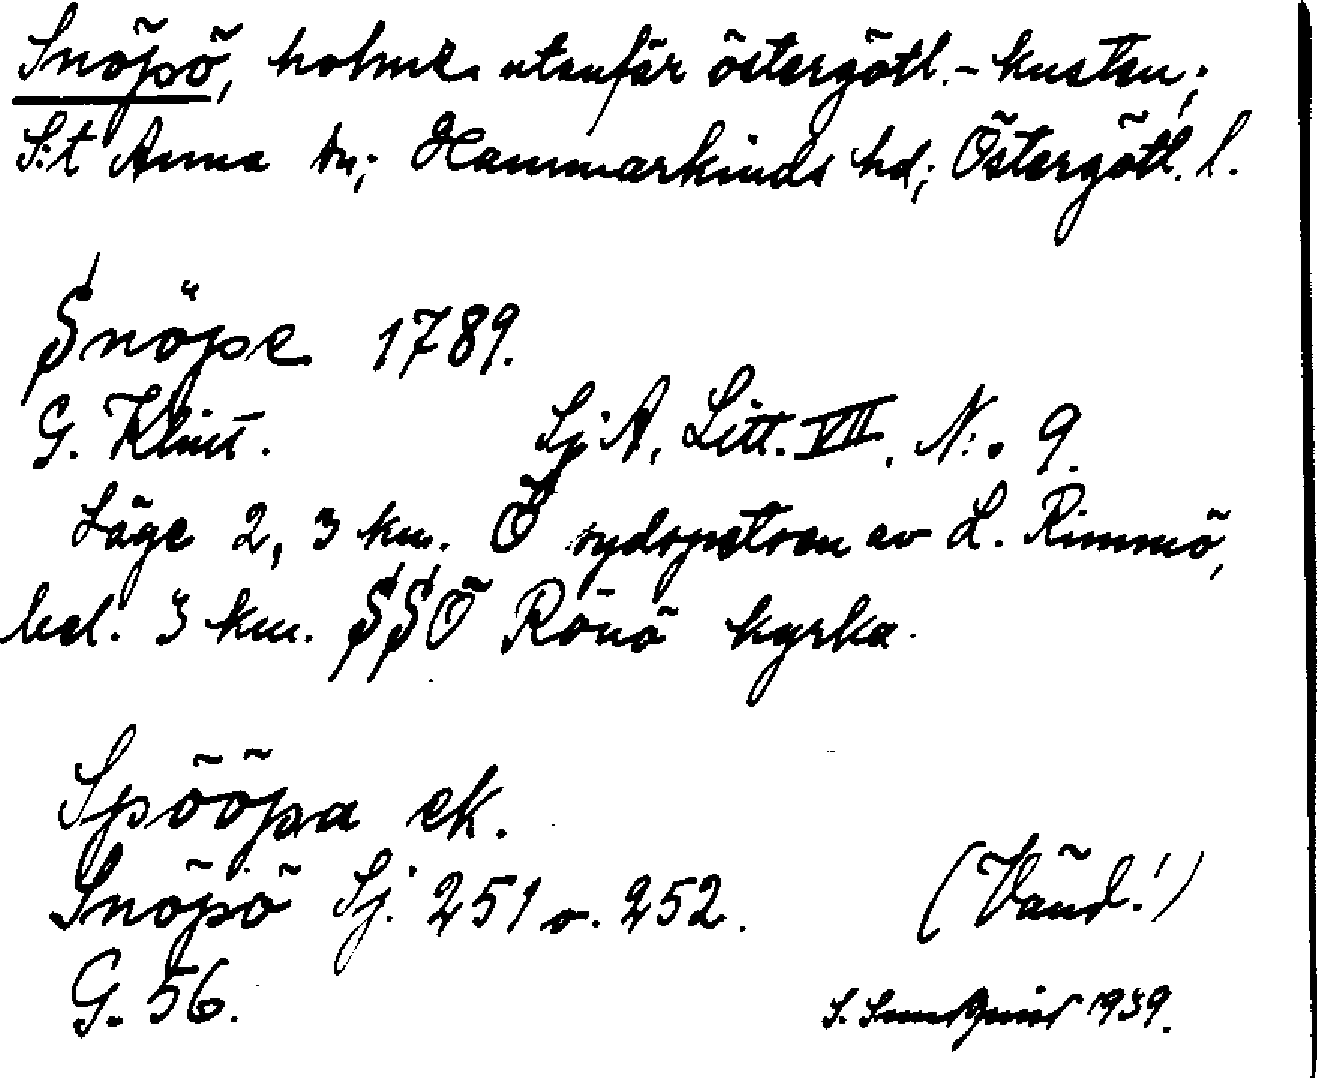 Snöpö, holme utanför östergötl.-kusten;
S:t Anna sn; Hammarkinds hd; Östergötl. l.
Snöpe 1789.
G. Klint. Sj A, Litt. VII, N:o 9.
Läge 2,3 km. Ö sydspetsen av L. Rimmö,
bel. 3 km. SSÖ Rönö kyrka.
Spööpa ek.
Snöpö Sj. 251 o. 252. (Vänd!)
G. 56.
S. Sundqvist 1939.